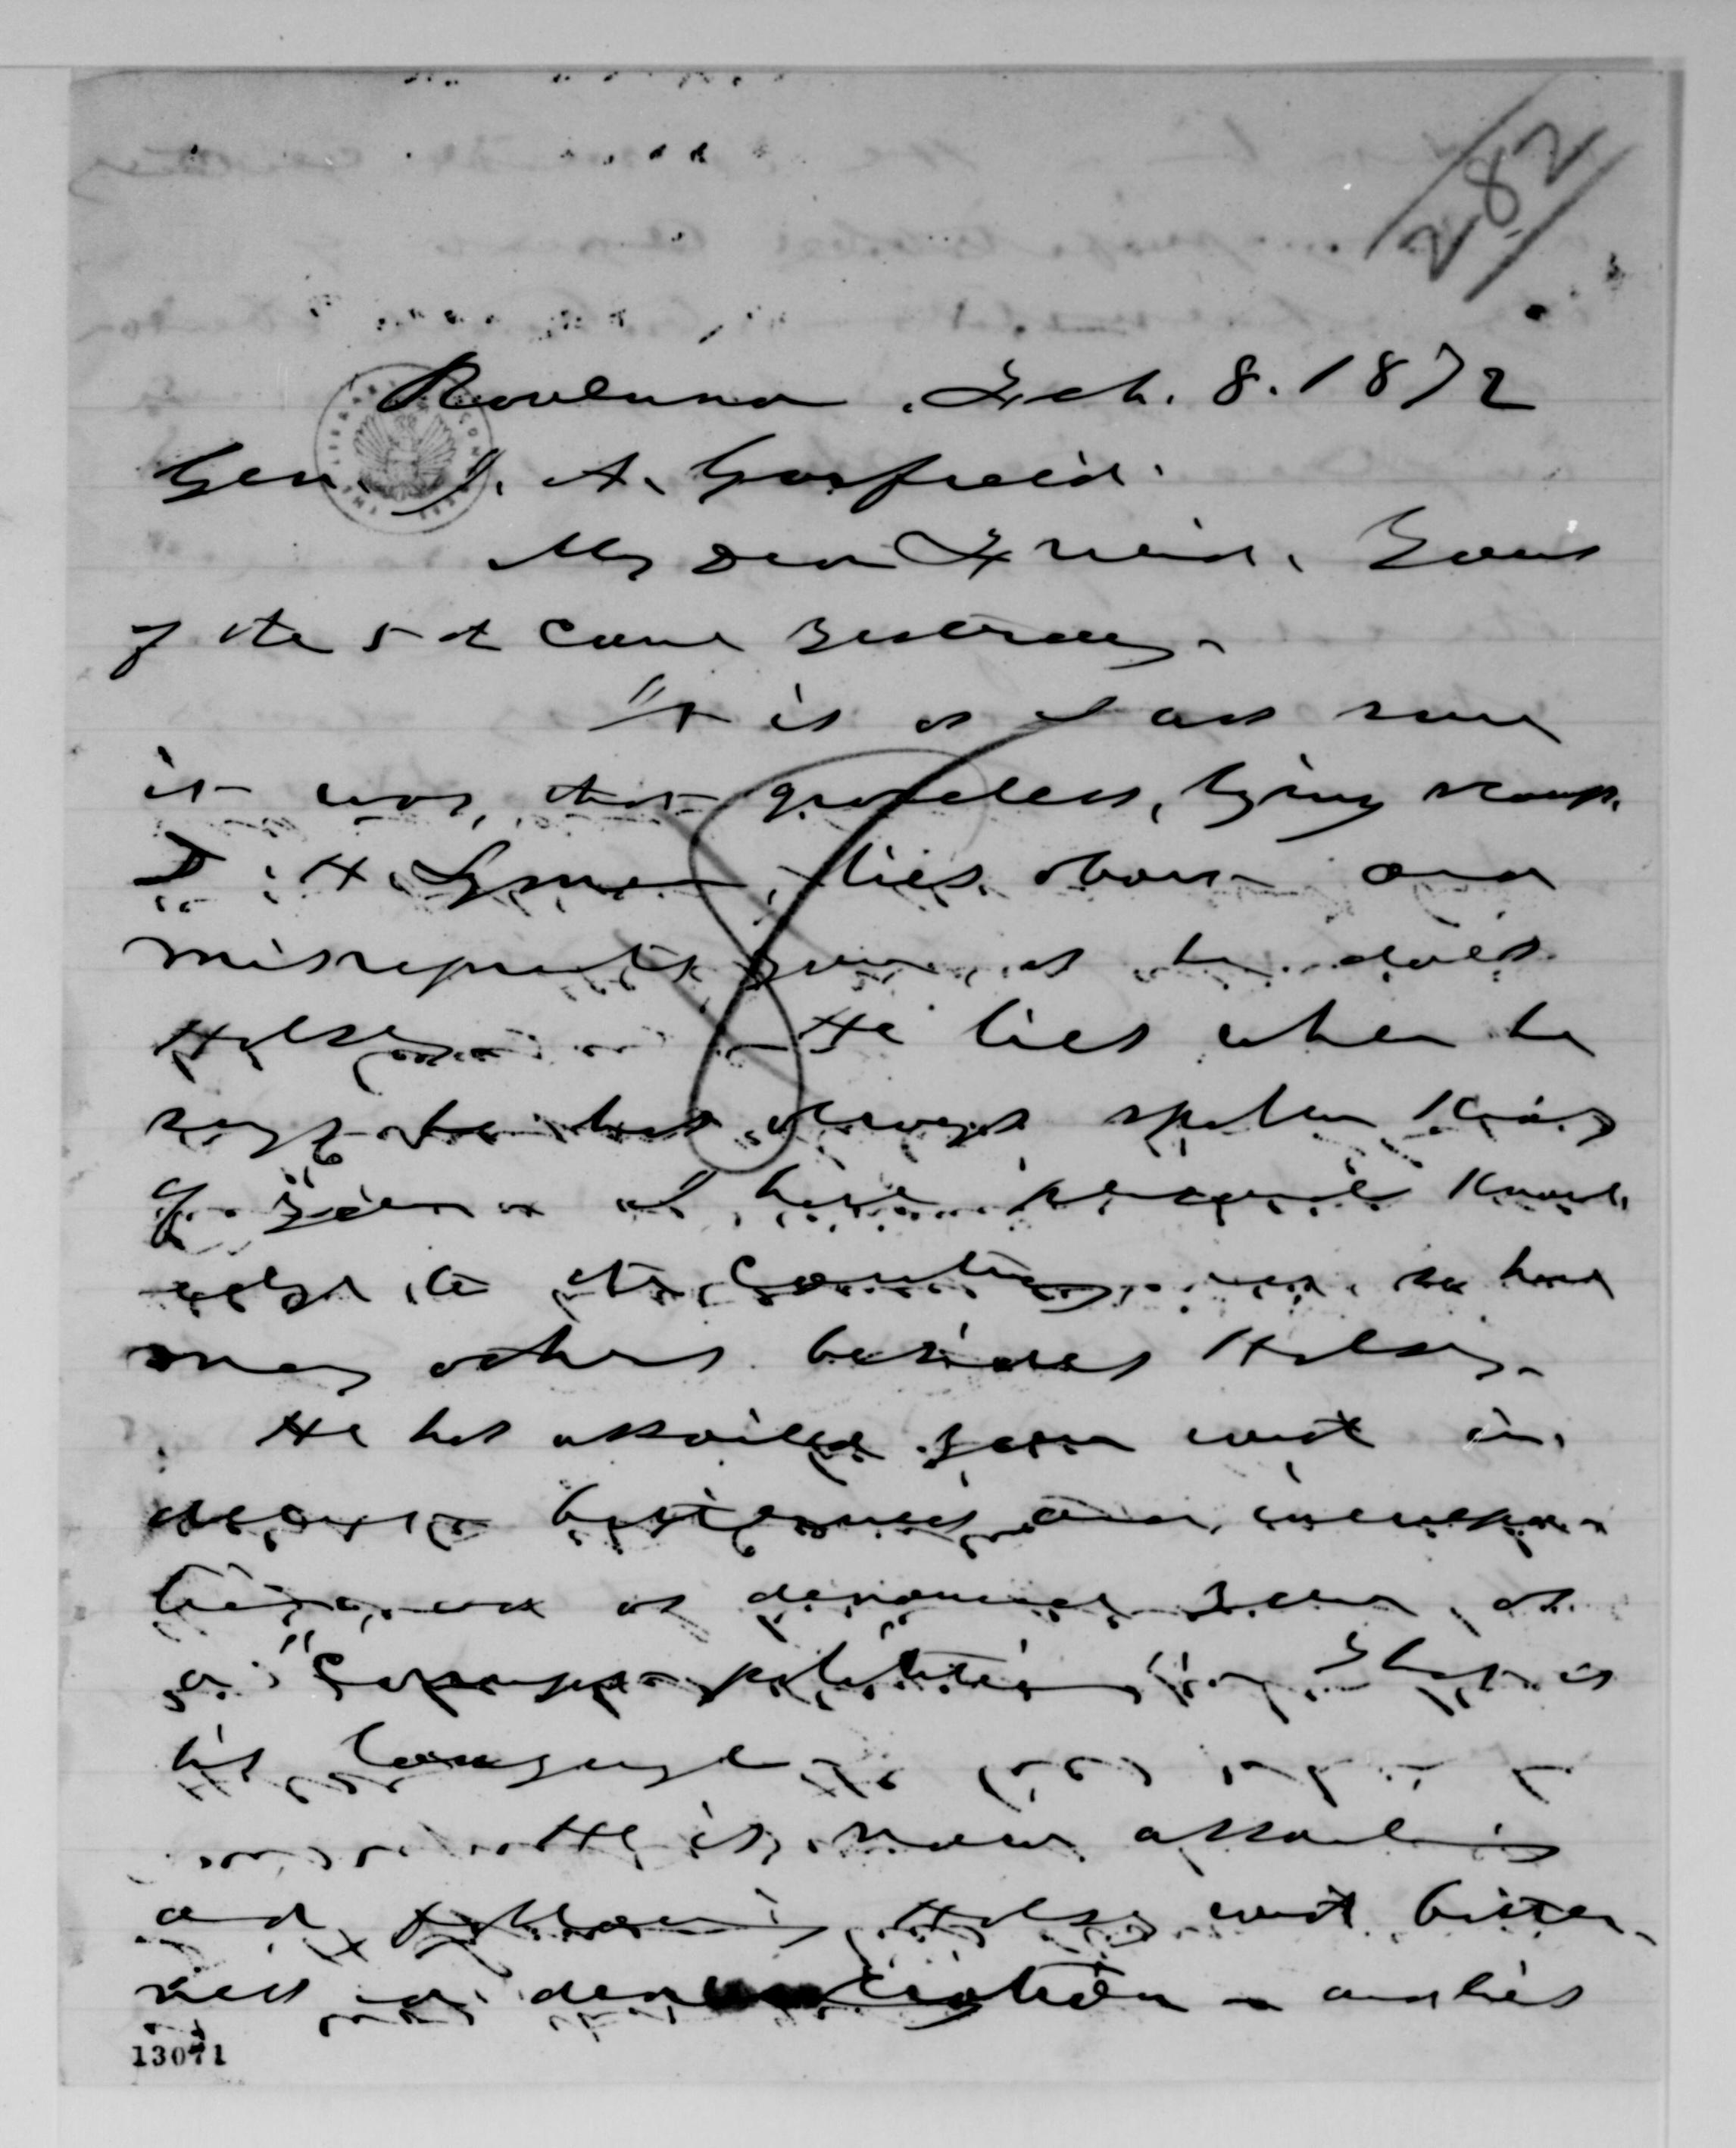 282
Ravenna. Feb. 8. 1872
Gen. J. A. Garfield.
My Dear Friend. Yours
of the 5th came yesterday.
It is as I was sure
it was, that graceless, lying scamp.
D. H. Lyman, lies about and
misrepresents you, as he does
Halsey. He lies when he
says he has always spoken kindly
of you. I have personal knowl
edge to the contrary, and so have
many others besides Halsey.
He has assailed you with
bitterness and
as denounced you as
a "Corrupt politician". That is
his language
He is now assailing
and following Halsey with bitter-
ness in denunciation and lies
13071